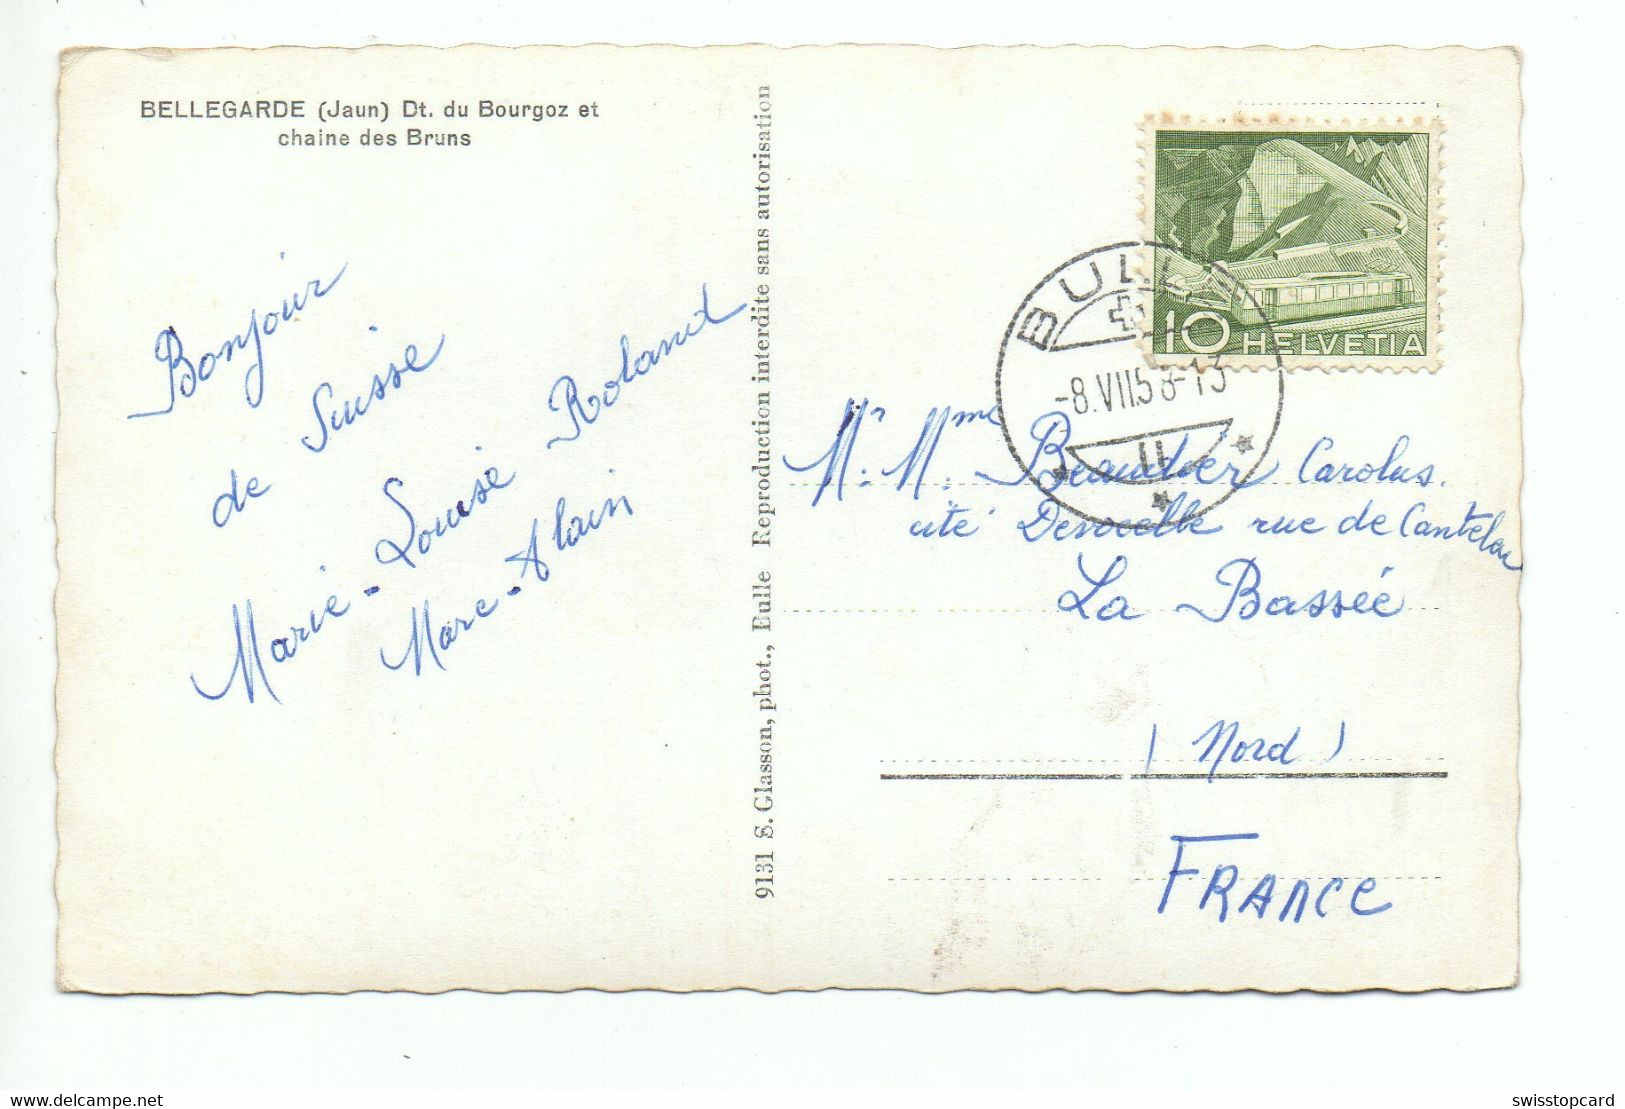 BELLEGARDE (Jaun) Dt. du Bourgoz et
chaine des Bruns
Bonjour
de Suisse
Marie-Louise Roland
Marc-Alain
9131 S. Glasson, phot., Bulle Reproduction interdite sans autorisation
10 HELVETIA
BULLE
-8.VII.58-13
Mr. Mme Beaudier Carolus.
cité Devocelle rue de
La Bassée
(Nord)
FRANCE
www.delcampe.net
swisstopcard